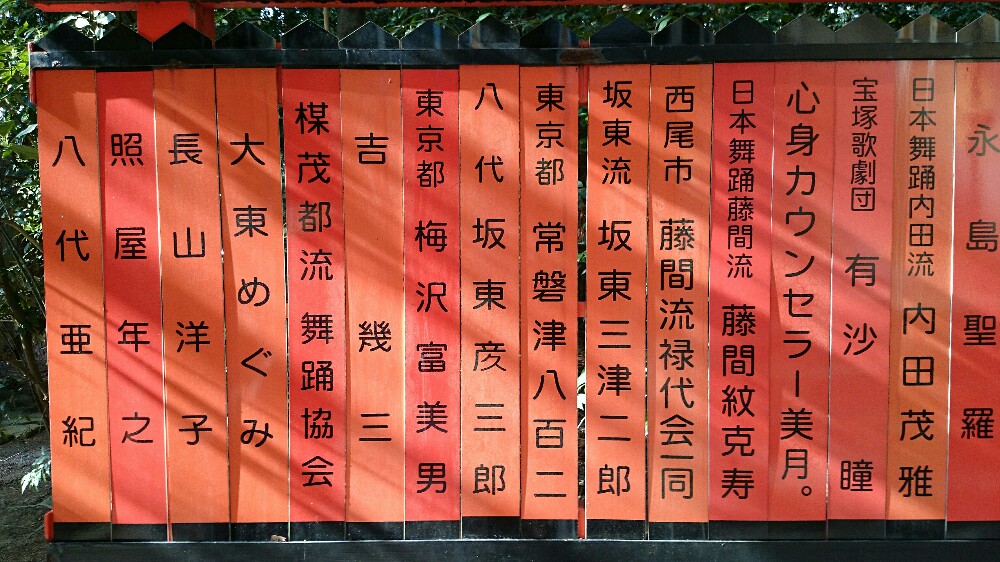 永島聖羅
日本舞踊内田流 内田茂雅
宝塚歌劇団 有沙瞳
心身カウンセラー美月。
日本舞踊藤間流 藤間紋克寿
西尾市 藤間流禄代会一同
坂東流 坂東三津二郎
東京都 常磐津八百二
八代 坂東彦三郎
東京都 梅沢富美男
吉幾三
楳茂都流 舞踊協会
大東めぐみ
長山洋子
照屋年之
八代亜紀